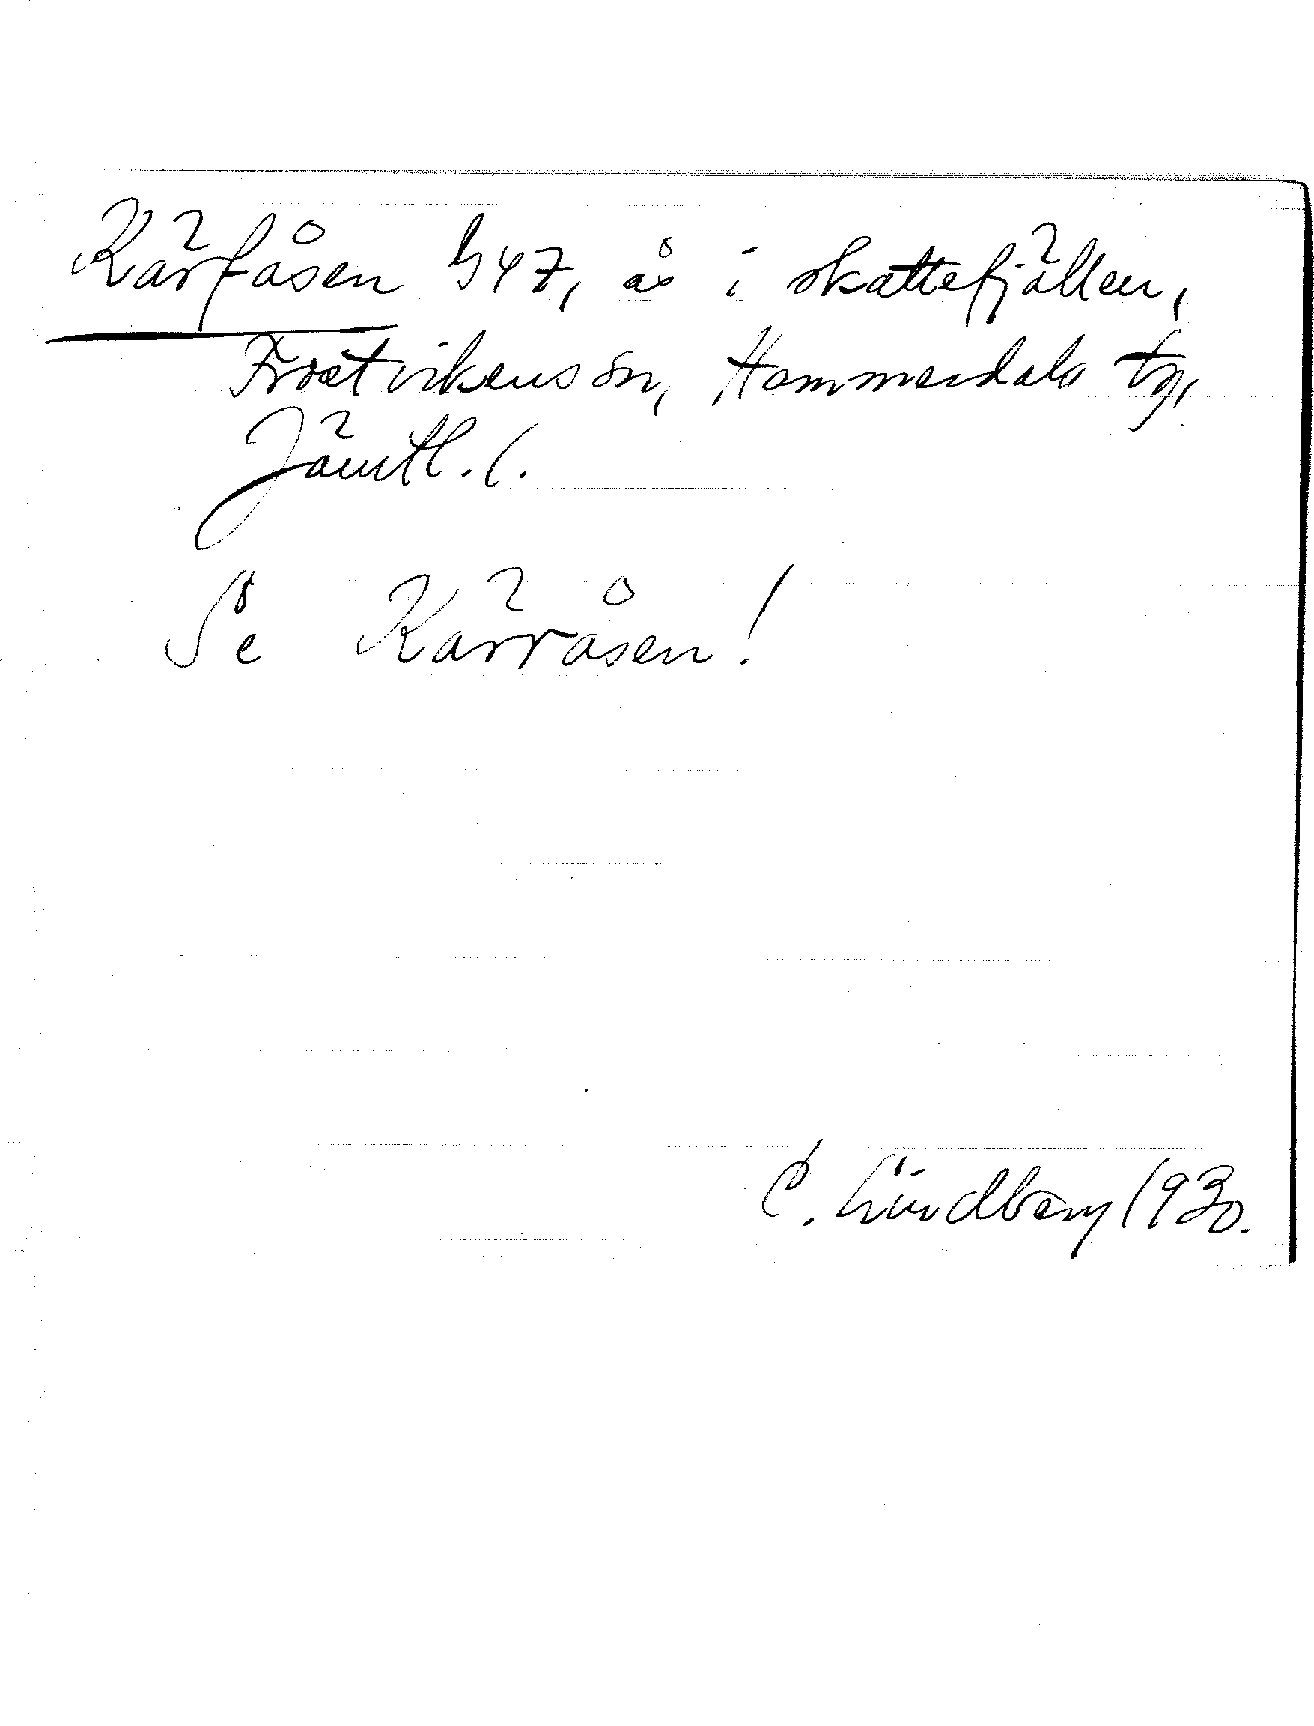 Kärfåsen G47, ås i skattefjällen,
Frostvikens sn, Hammerdals tg,
Jämtl. l.
Se Kärråsen!
C. Lindberg 1930.